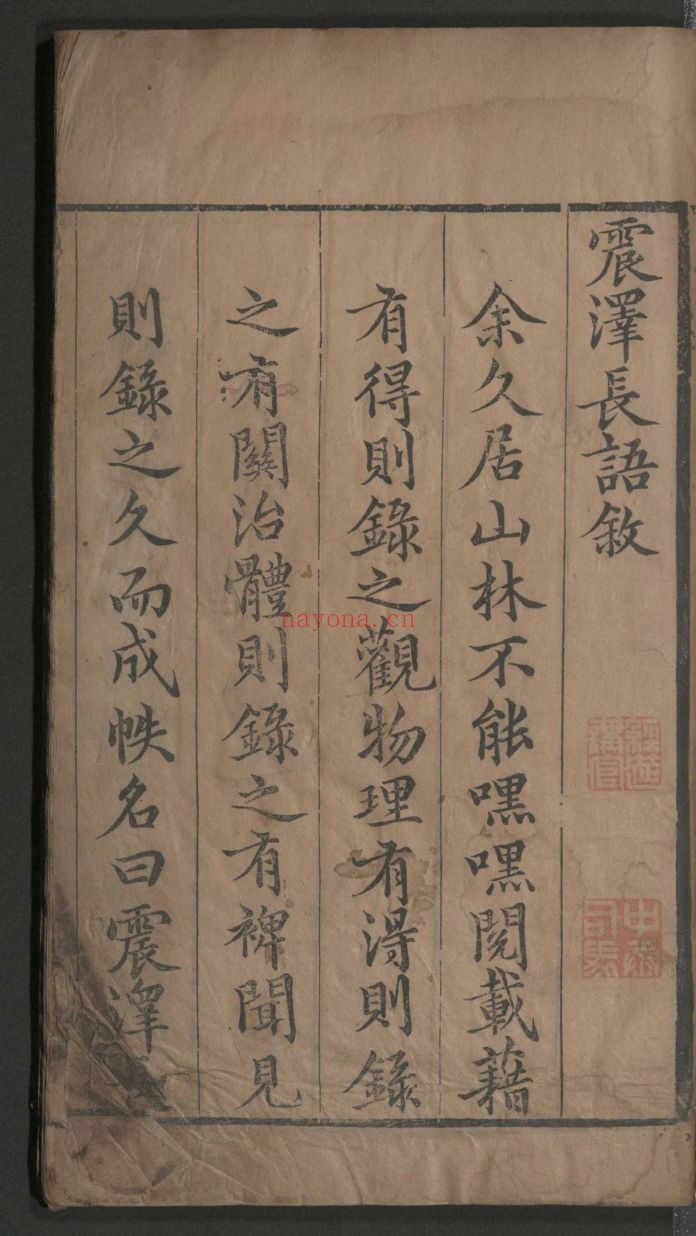 震澤長語敘
余久居山林不能嘿嘿閱載藉
有得則錄之觀物理有得則錄
之有關治體則錄之有裨聞見
則錄之久而成帙名曰震澤
nayona.cn